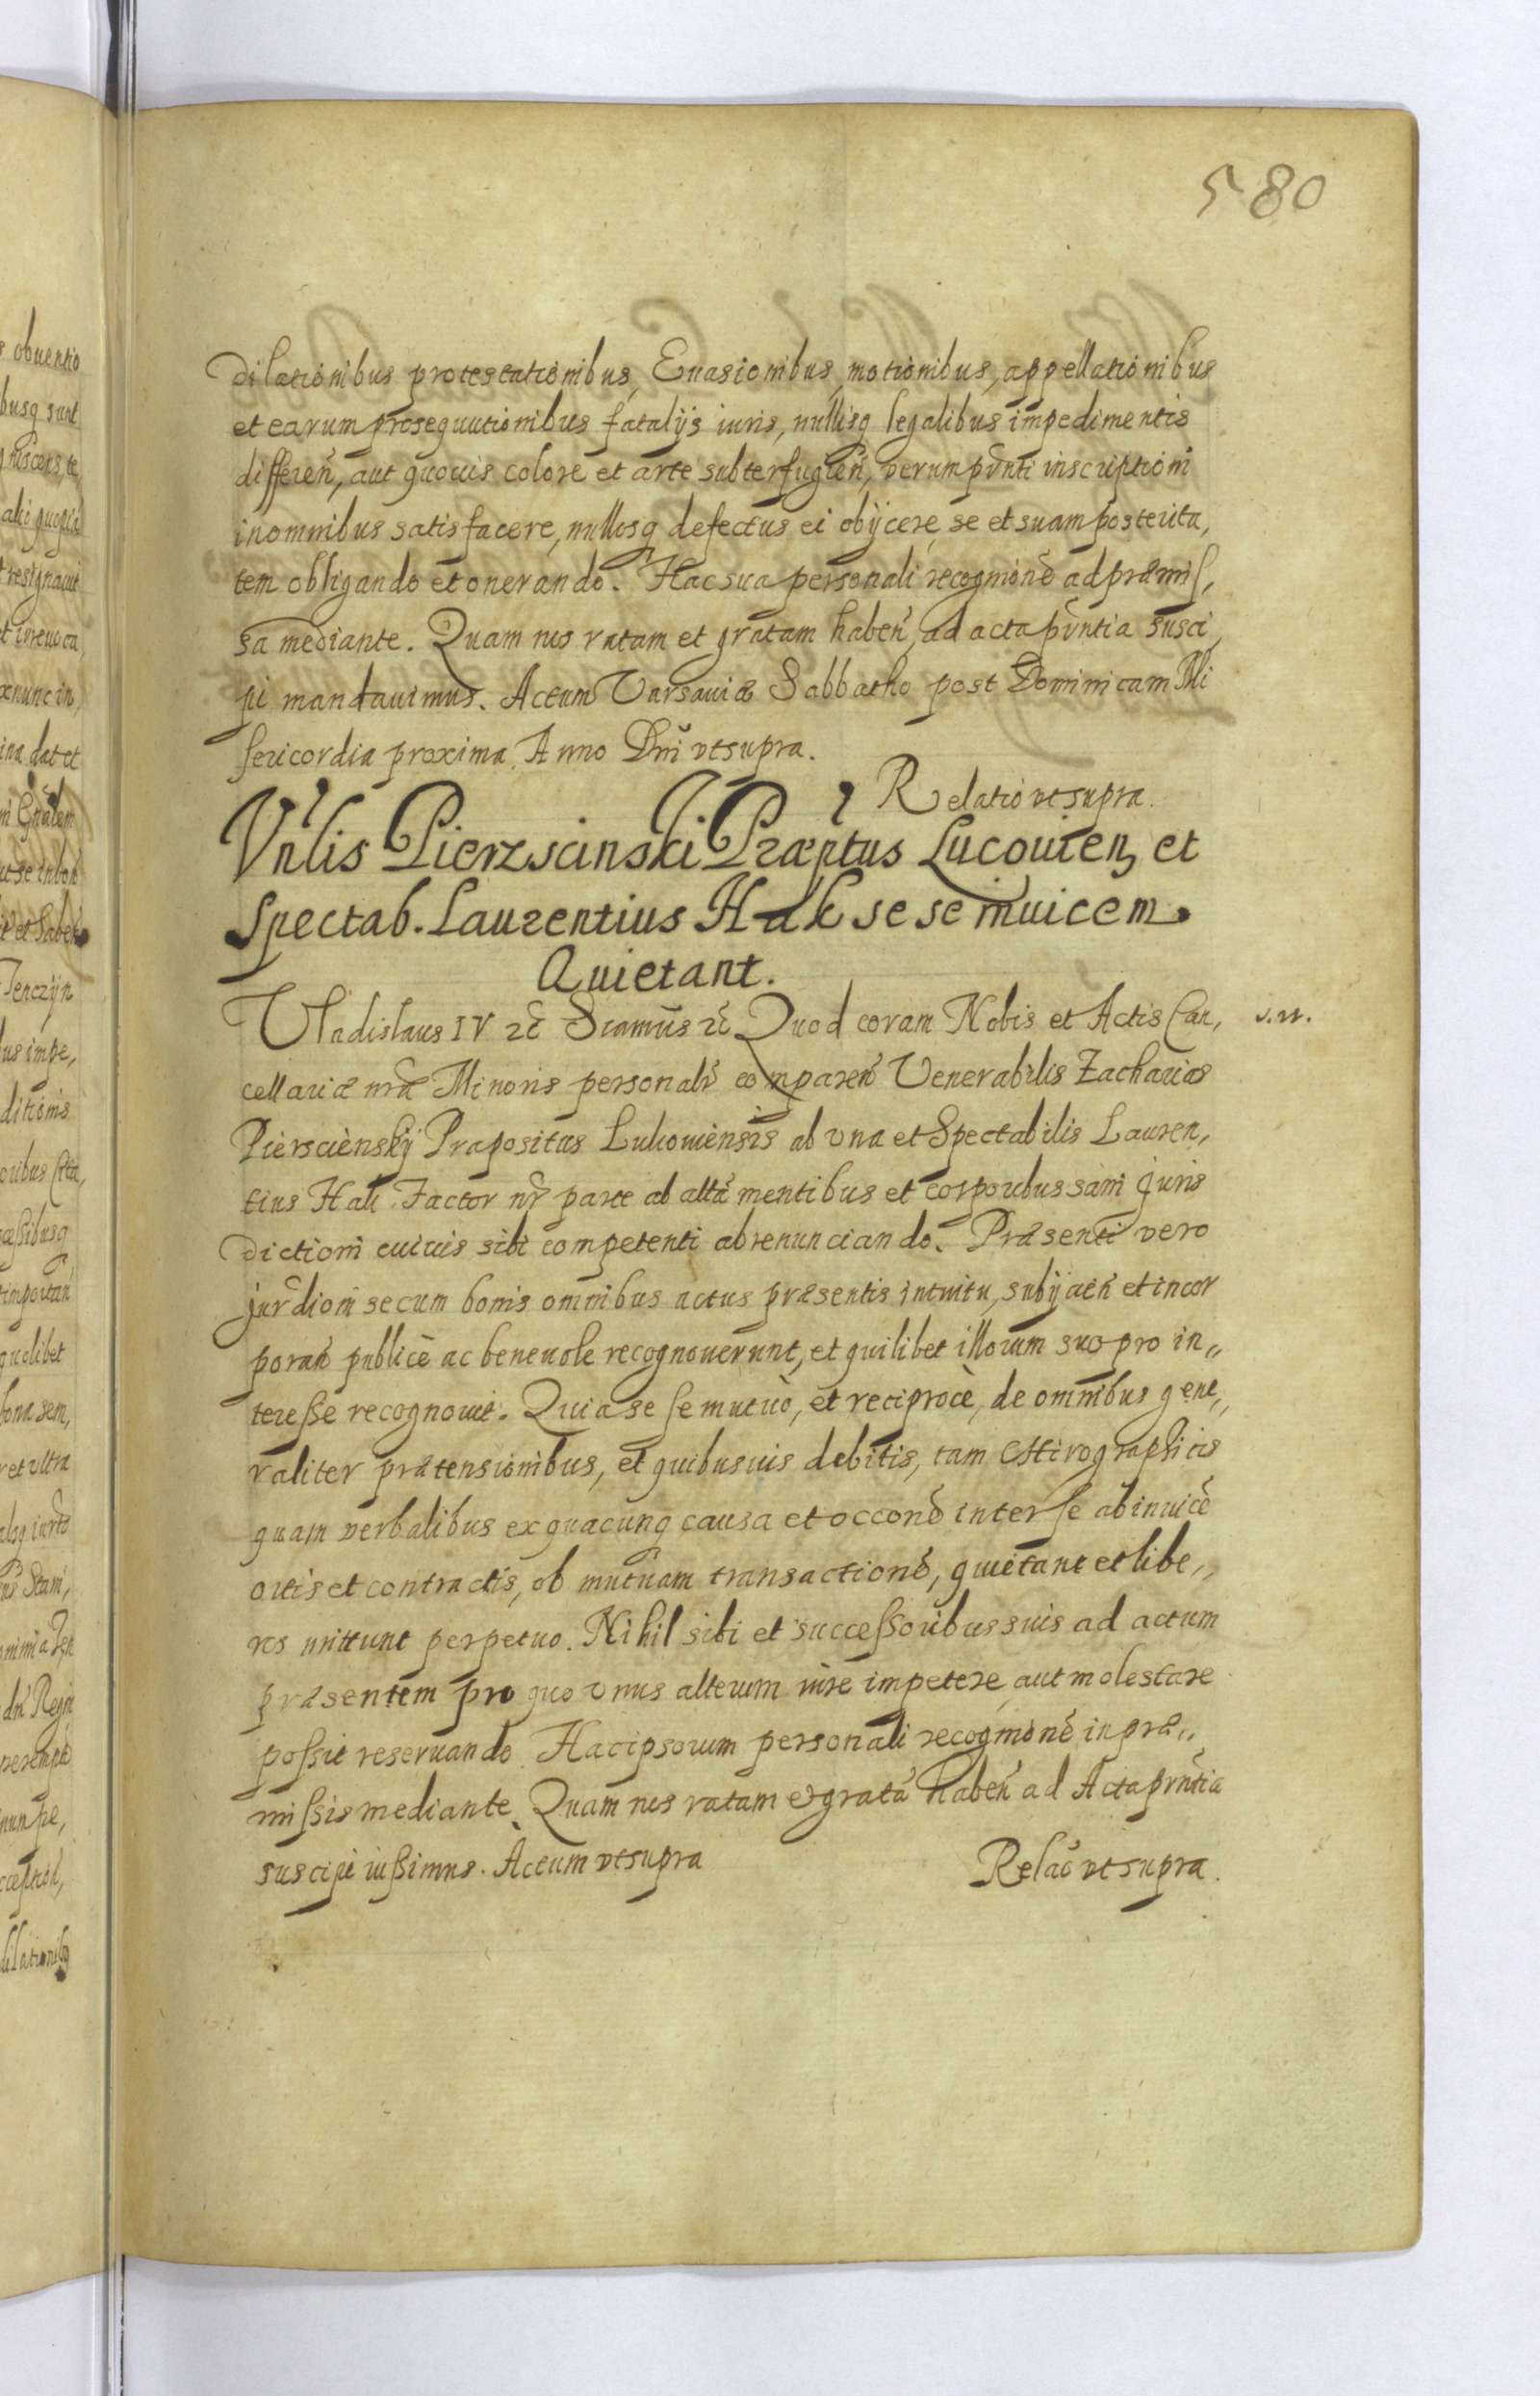 580
dilationibus protestationibus, Euasionibus, motionibus, appellationibus
et earum prosequutionibus fatalijs iuris, nullisq legalibus impedimentis
differen̄, aut quouis colore et arte subterfugien̄, verum pñnti inscriptioni
in omnibus satisfacere, nullosq defectus ei obijcere, se et suam posterita,
tem obligando et onerando. Hac sua personali recognitionē ad præmis,
sa mediante. Quam nos ratam et gratam haben̄, ad acta pñntia susci,
pi mandauimus. Actum Varsauiæ Sabbatho post Dominicam Mi
sericordia proxima, Anno Dn̄i vt supra.
Relatio vt supra.
Vn̄lis Pierzscinski Præptus Lucouien, et
Spectab. Laurentius Hak se se inuicem
Quietant.
Vladislaus IV &c̄ Scamus̄ &c̄ Quod coram Nobis et Actis Can,
cellariæ nr̄æ Minoris personalr̄ comparen̄ Venerabilis Zacharias
Piersciensky Præpositus Lukouiensis ab vna et Spectabilis Lauren,
tius Hak Factor nr̄ parte ab altā mentibus et corporibus sani Juris
dictioni cuiuis sibi competenti abrenunciando. Præsenti vero
jur̄dioni se cum bonis omnibus actus præsentis intuitu, subijcien̄ et incor
poran̄ publicè ac beneuole recognouerunt, et quilibet illorum suo pro in,,
teresse recognouit. Quia se se mutuò, et reciprocè, de omnibus gene,,
raliter prætensionibus, et quibusuis debitis, tam Chirographicis
quam verbalibus ex quacunq causa et occonē inter se ab inuicē
ortis et contractis, ob mutuam transactionē, quietant et libe,,
ros mittunt perpetuo. Nihil sibi et successoribus suis ad actum
præsentem pro quo vnus alterum iure impetere, aut molestare
possit reseruando. Hac ipsorum personali recognitionē in præ,,
missis mediante. Quam nos ratam et gratā haben̄ ad Acta prn̄tia
suscipi iussimus. Actum vt supra
Relāo vt supra.